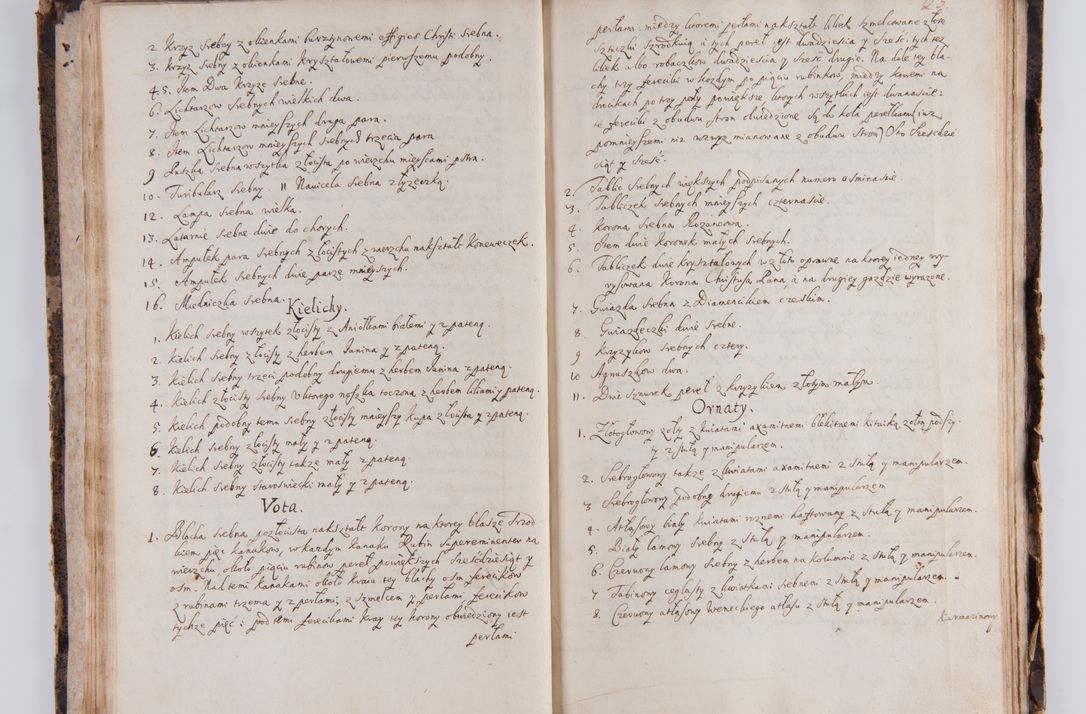 2. Krzyz srebny z obienkami bursztynowemi effigies Christi srebna.
3. Krzyz srebny z obienkami krysztalowemi pierwszemu podobny.
4. 5. Item Dwa Krzyze srebne.
6. Lichtarzow srebnych wielkich dwa.
7. Item Lichtarzow mnieyszych druga para.
8. Item Lichtarzow mnieyszych srebnych trzecia para
9 Puszka srebna wszytka złocista po wierzchu mieyscami pstra.
10. Turibularz srebny. 11 Nauicela srebna z łyzeczką.
12. Lampa srebna wielka.
13. Latarnie srebne dwie do chorych.
14. Ampułek para srebnych złocistych z wierzchu nakształt konweczek.
15. Ampułek srebnych dwie parze mnieyszych.
16. Miedniczka srebna.
Kielichy.
1. Kielich srebny wszytek złocisty z Aniołkami białemi y z pateną.
2. Kielich srebny złocisty z herbem Janina y z pateną.
3. Kielich srebny trzeci podobny drugiemu z herbem Janina z pateną.
4. Kielich złocisty srebny v ktorego noszka toczona z herbem liliami y pateną.
5. Kielich podobny temu srebny złocisty mnieyszy kupa złocista y z pateną.
6. Kielich srebny złocisty mały y z pateną.
7. Kielich srebny złocisty takze mały z pateną.
8. Kielich srebny staroswiecki mały y z pateną.
Vota.
1. Blacha srebna pozłocista nakształt korony na ktorey blasze srzod
kiem pięc kanakow, w kazdym kanaku Rubin supereminenter na
wierzchu około pięciu rubinow pereł powiększych szescdziesiąt y
osm. Nad temi kanakami około kraiu tey blachy osm fereckow
z rubinami trzema y z perłami, z szmelcem y perłami, ferecikow
tychze pięc: pod temi ferecikami kray tey korony obwiedziony iest
perłami
perłami: między ktoremi perłami nakształt lilek szmelcowane złote
sztuczki szrodkuią, i tych pereł iest dwadziescia y szesc: tych tez
lilek albo robaczkow dwadziescia y szesc drugie. Na dole tey bla-
chy trzy fereciki w kozdym po pięciu rubinkow, między kturemi na
drucikach po trzy perły powiększe, ktorych wszytkich iest dwanascie:
te fereciki z obudwu stron obwiedzione są do koła perełkami (iuz
pomnieyszemi niz wzwyz mianowane z obudwu stron) Oko szescdzie
siąt y szesc.
2. Tablic srebnych większych podpisanych numero osmnascie.
3. Tabliczek srebnych mnieyszych czternascie.
4. Korona srebna Rozancowa.
5. Item dwie koronek małych srebnych.
6. Tabliczek dwie krysztalowych w złoto oprawne na ktorey iedney wy-
rysowana Korona Christusa Pana, a na drugiey gozdzie wyrazone.
7. Gwiazda srebna z Diamencikiem czeskim.
8. Gwiazdeczki dwie srebne.
9 Krzyzykow srebnych cztery.
10 Agnuszkow dwa.
11. Dwie sznurek pereł z krzyzykiem złotym małym.
Ornaty.
1. Złotogłowowy zołty z kwiatami axamitnemi blękitnemi kitaiką zołtą podszy-
ty z stułą y manipularzem.
2. Srebrogłowy takze z kwiatami axamitnemi z stułą y manipularzem.
3 Srebrogłowy podobny drugiemu z stułą y manipularzem
4. Atłasowy biały kwiatami roznemi haftowany z stułą y manipularzem.
5. Biały lamowy srebny z stułą y manipularzem.
6. Czerwony lamowy srebny z herbem na kolumnie z stułą y manipularzem.
7 Tabinowy ceglasty z kwiatkami srebnemi z stułą y manipularzem.
8. Czerwony atłasowy weneckiego atłasu z stułą y manipularzem.
Karmazinowy